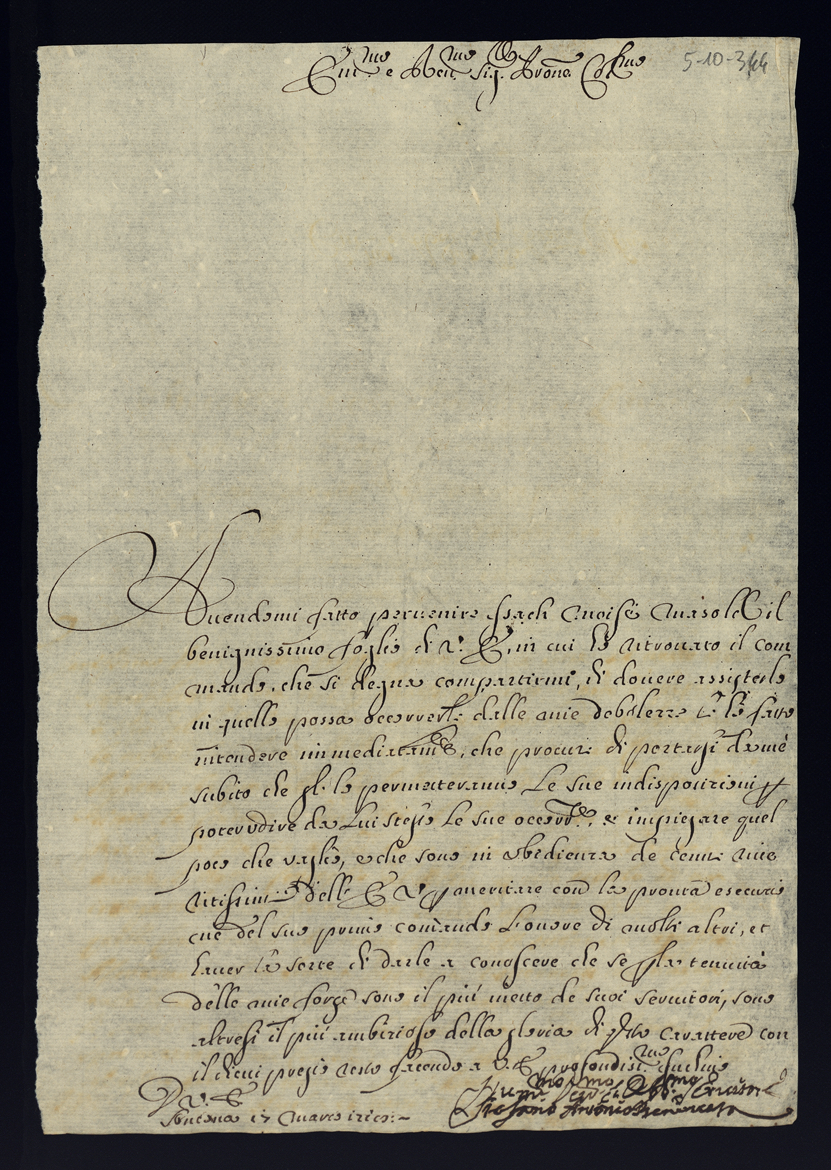 Em.mo e Reu.mo Sig.r Prone Col.mo
5-10-3
Auendomi fatto peruenire Isach Moisé il
benignissimo foglio di V. E. in cui hò ritrouato il com
mando, che si degna compartirmi, di douere assisterlo
in quello possa occorrerli dalle mie debolezze hò fatto
intendere immediatam.te, che procuri di portarsi da mè
subito che gli lo permetteranno le sue indisposizioni p
poter udire da lui stesso le sue occorr.ze, e impiegare quel
poco che vaglio, e che sono in obidienza de cenni
dell' E V p meritare con la pronta esecuzio
ne del suo primo comando l'onore di molti altri, et
hauer la sorte di darle a conoscere che se p la tenuità
delle mie forze sono il più meno de suoi seruitori, sono
altresi il più ambizioso della gloria di q.sto carattere con
il di cui pregio resto facendo a V. E. profondis.mo inchino
D. V. E.
Ancona 17 Marzo
Hum.mo
Stefano Antonio